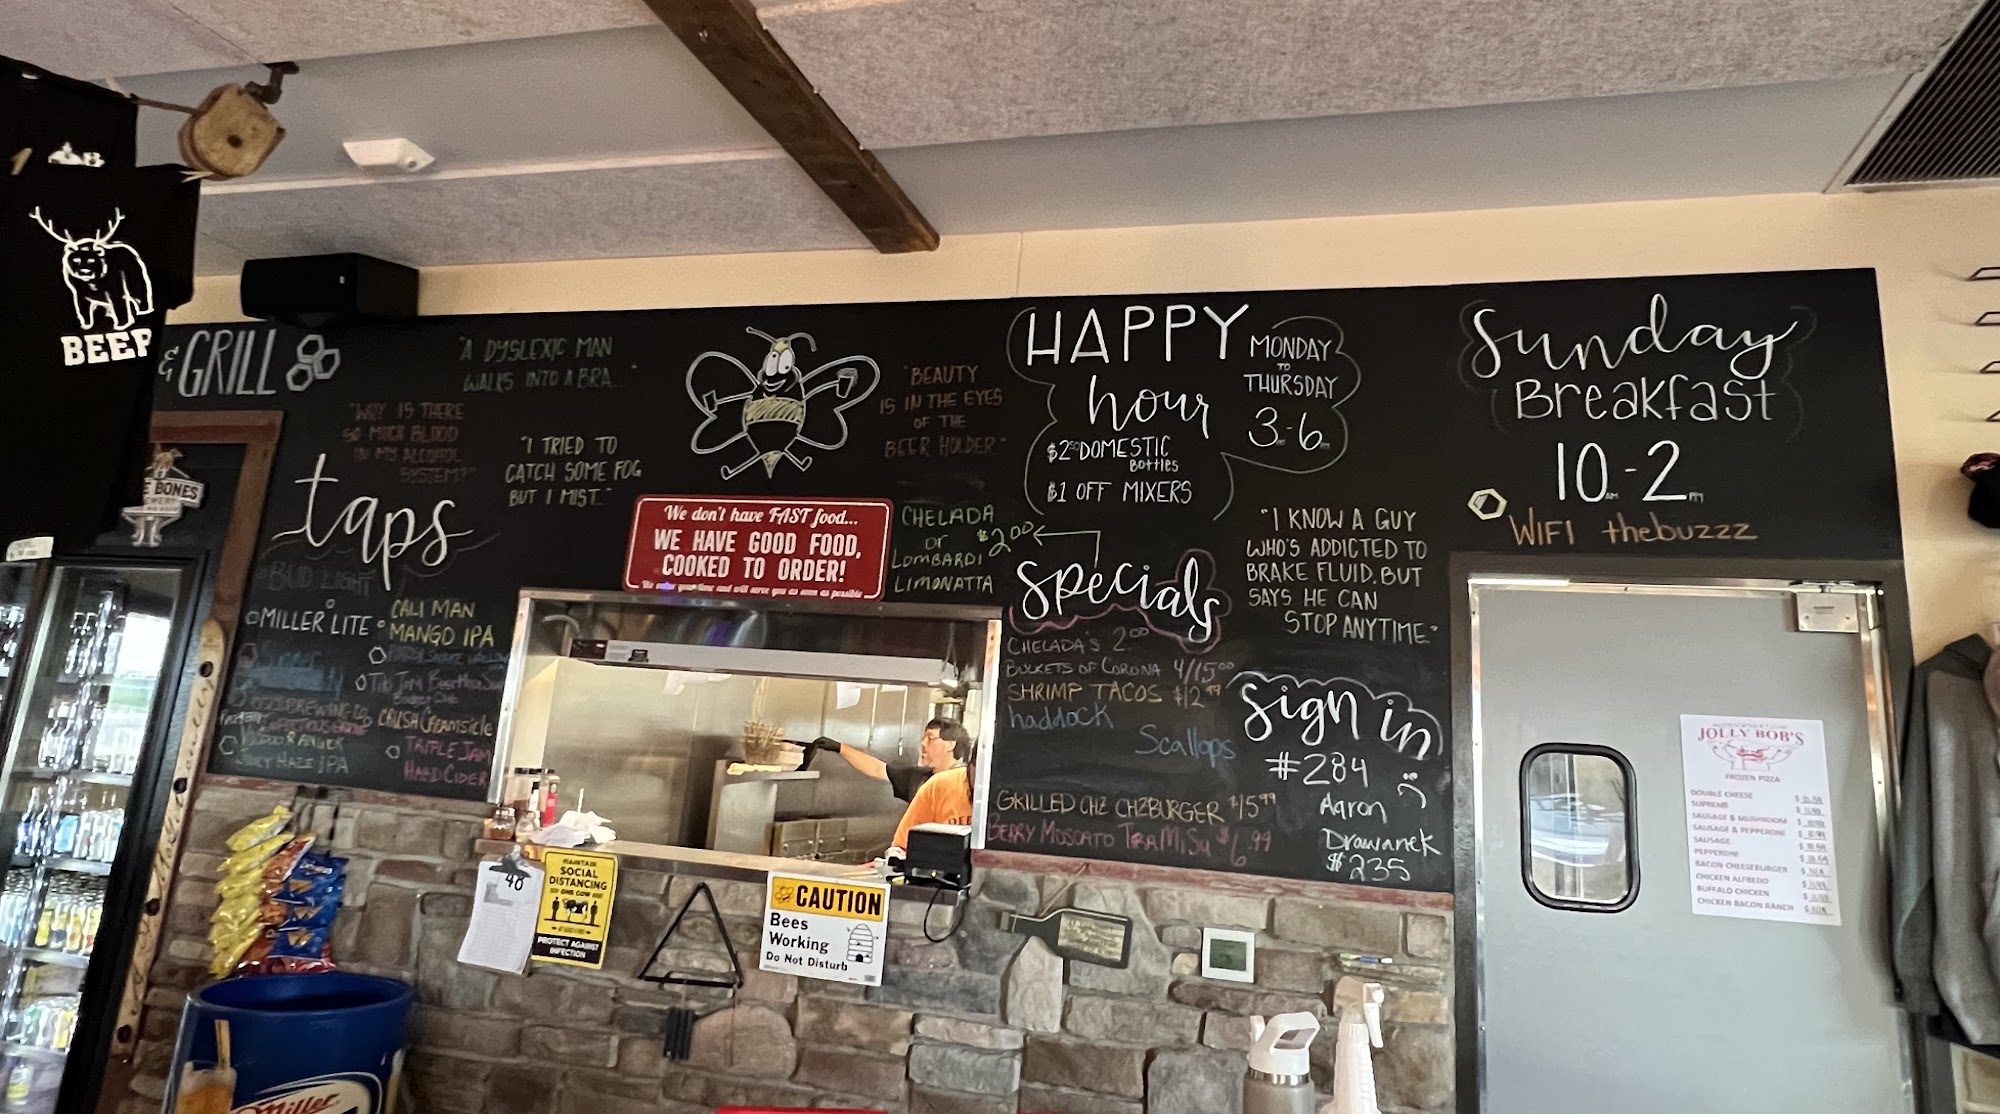 BEER
& GRILL
"A DYSLEXIC MAN
WALKS INTO A BRA..."
"WHY IS THERE
SO MUCH BLOOD
IN MY ALCOHOL
SYSTEM?"
"I TRIED TO
CATCH SOME FOG
BUT I MIST."
"BEAUTY
IS IN THE EYES
OF THE
BEER HOLDER"
HAPPY
hour
MONDAY
TO
THURSDAY
3-6
$2.50 DOMESTIC
BOTTLES
$1 OFF MIXERS
Sunday
BREAKFAST
10AM-2PM
WIFI thebuzzz
BONES
taps
BUD LIGHT
MILLER LITE
CALI MAN
MANGO IPA
VOODOO RANGER
JUICY HAZE IPA
CRUSH CREAMSICLE
TRIPLE JAM
HARD CIDER
We don't have FAST food...
WE HAVE GOOD FOOD,
COOKED TO ORDER!
We value your time and will serve you as soon as possible
CHELADA
or
LOMBARDI
LIMONATTA
$2.00
specials
CHELADA'S 2.00
BUCKETS OF CORONA 4/15.00
SHRIMP TACOS $12.99
haddock
Scallops
GRILLED CHZ CHZBURGER $15.99
BERRY MOSCATO TIRAMISU $6.99
"I KNOW A GUY
WHO'S ADDICTED TO
BRAKE FLUID. BUT
SAYS HE CAN
STOP ANYTIME."
Sign in
#284
Aaron
Drawanek
$235
JOLLY BOB'S
FROZEN PIZZA
DOUBLE CHEESE
SUPREME
SAUSAGE & MUSHROOM
SAUSAGE & PEPPERONI
SAUSAGE
PEPPERONI
BACON CHEESEBURGER
CHICKEN ALFREDO
BUFFALO CHICKEN
CHICKEN BACON RANCH
40
MAINTAIN
SOCIAL
DISTANCING
ONE COW
PROTECT AGAINST
INFECTION
CAUTION
Bees
Working
Do Not Disturb
Miller